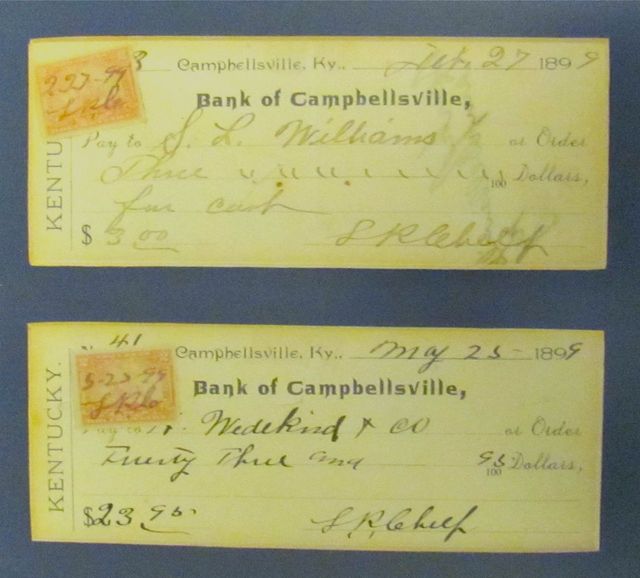 3 Campbellsville, Ky., Feb. 27 1899
2-27-99
Bank of Campbellsville,
KENTU
Pay to S. L. Williams or Order
Three 100 Dollars,
for cash
$ 3.00 S R Chelf
41
Campbellsville, Ky., May 23 1899
5-23-99
Bank of Campbellsville,
KENTUCKY.
Pay to Wedekind & Co or Order
Twenty Three and 95 100 Dollars,
$23.95 S. R. Chelf